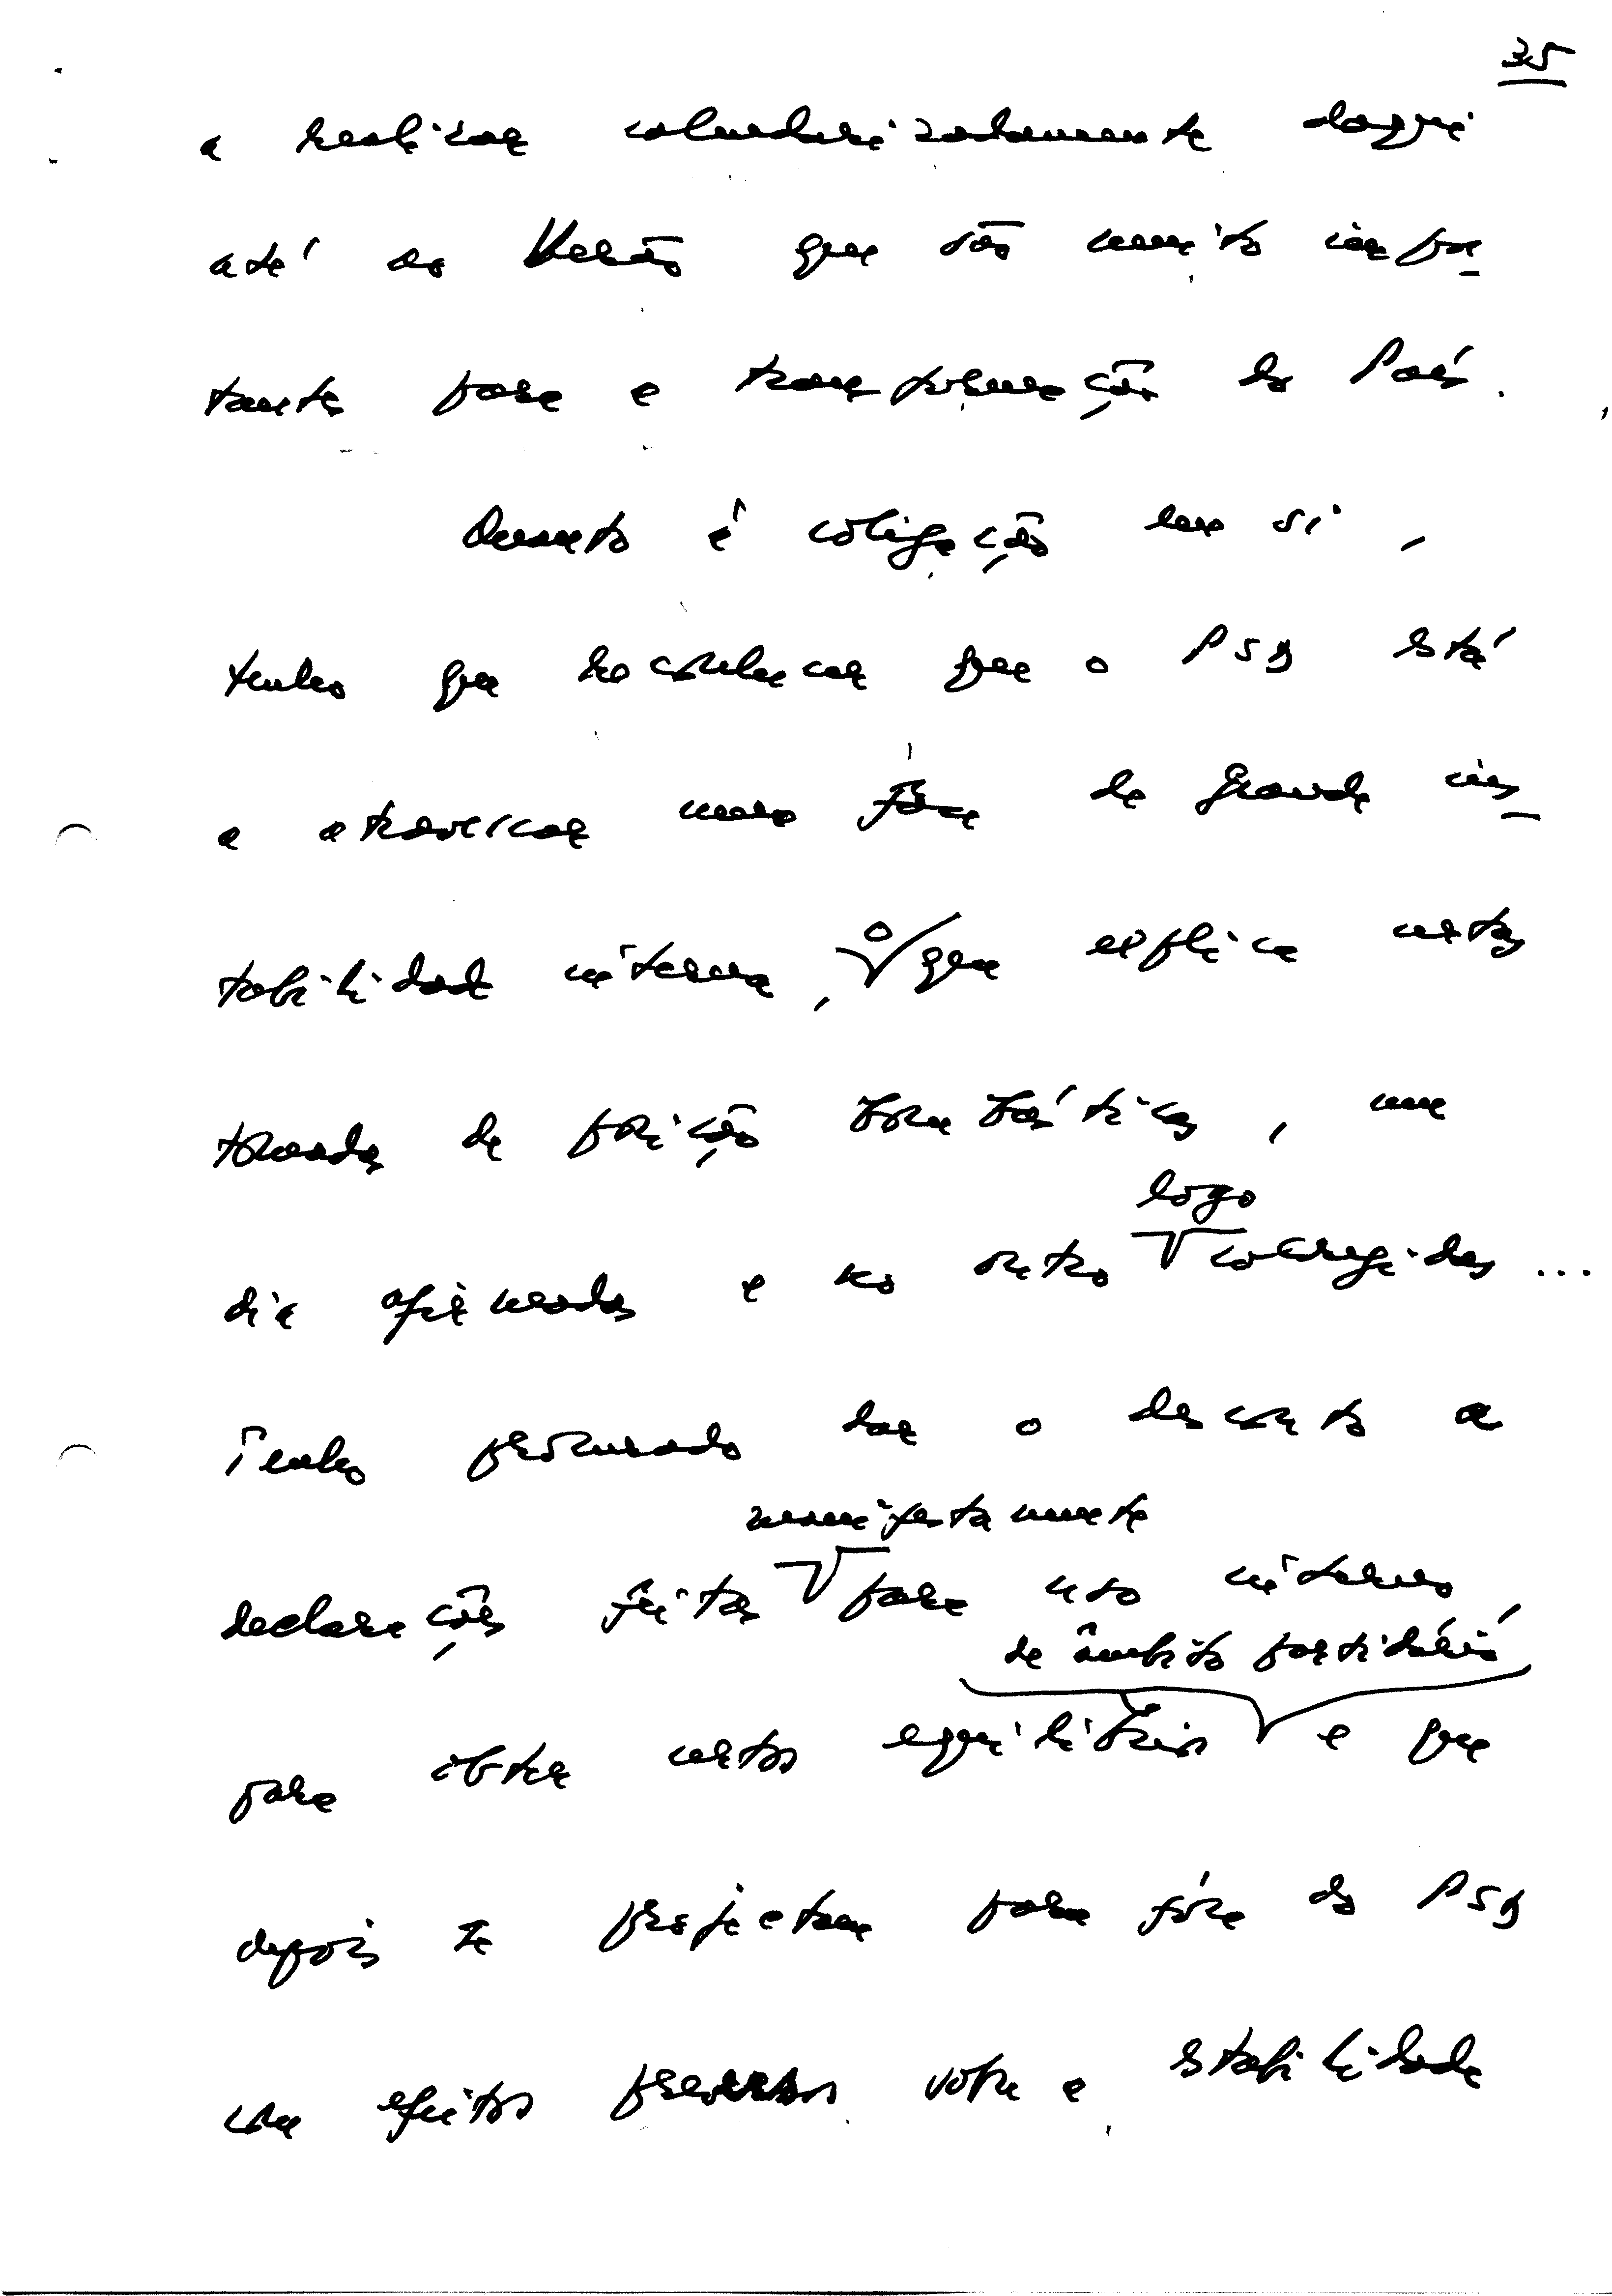 35
a realizar calendarizadamente daqui
até ao Verão que são muito impor
tantes para a transformação do País.
Quanto à coligação em si,
tenho que reconhecer que o PSD está
a atravessar uma fase de grande ins
tabilidade interna, o que explica certas
tomadas de posição bombásticas, num
dia afirmadas e no outro logo corrigidas...
Tenho procurado dar o desconto a
declarações feitas manifestamente para uso interno,
para obter certos equilíbrios de âmbito partidário e que
depois se projectam para fora do PSD
com efeitos perversos sobre a estabilidade